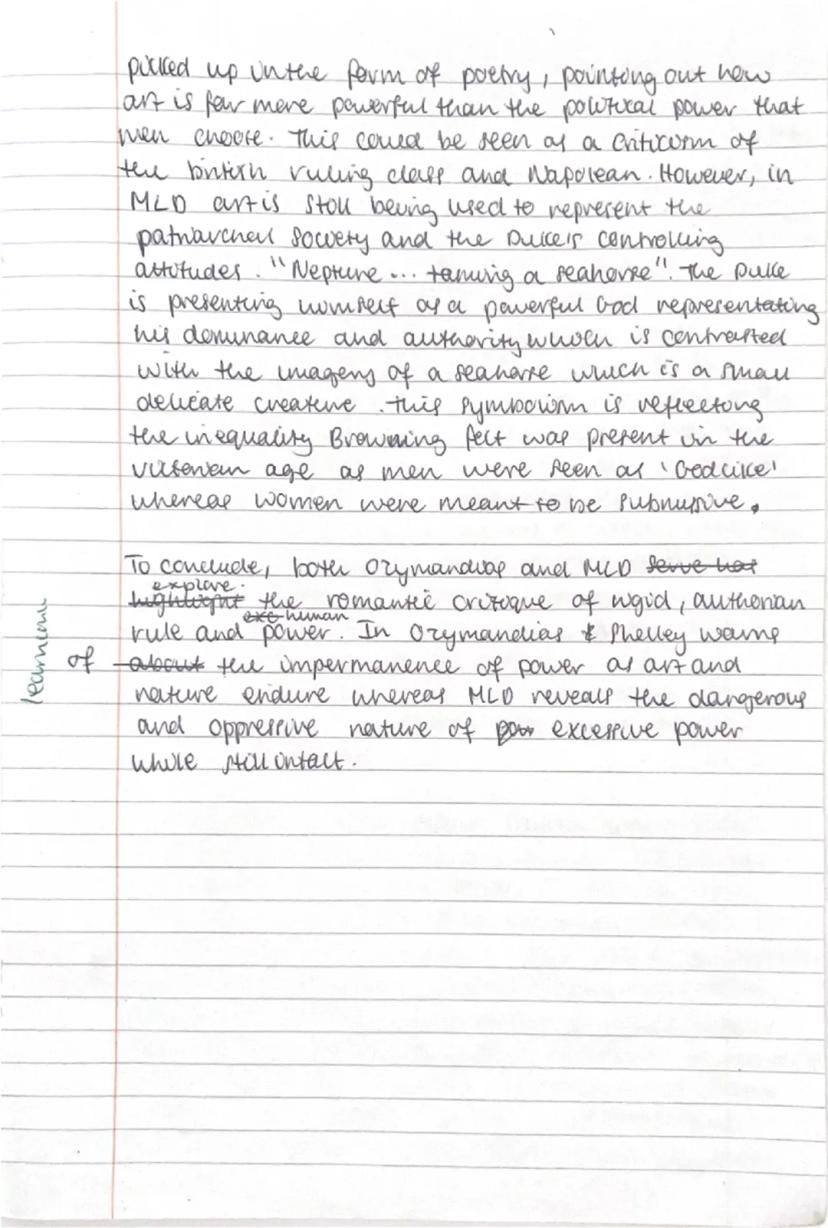 picked up in the form of poetry, pointing out how
art is far more powerful than the political power that
men create. This could be seen as a criticism of
the british ruling class and Napolean. However, in
MLD art is still being used to represent the
patriarchal society and the Duke's controlling
attitudes. "Neptune... taming a seahorse". The Duke
is presenting himself as a powerful God representating
his dominance and authority which is contrasted
with the imagery of a seahorse which is a small
delicate creature. This symbolism is reflecting
the inequality Browning felt was present in the
victorian age as men were seen as 'Godlike'
whereas women were meant to be submissive.
To conclude, both Ozymandias and MLD serve has
explore.
highlight the romantic critique of rigid, authorian
exc human
rule and power. In Ozymandias & Shelley warns
of about the impermanence of power as art and
nature endure whereas MLD reveals the dangerous
and oppressive nature of pow excessive power
while still intact.